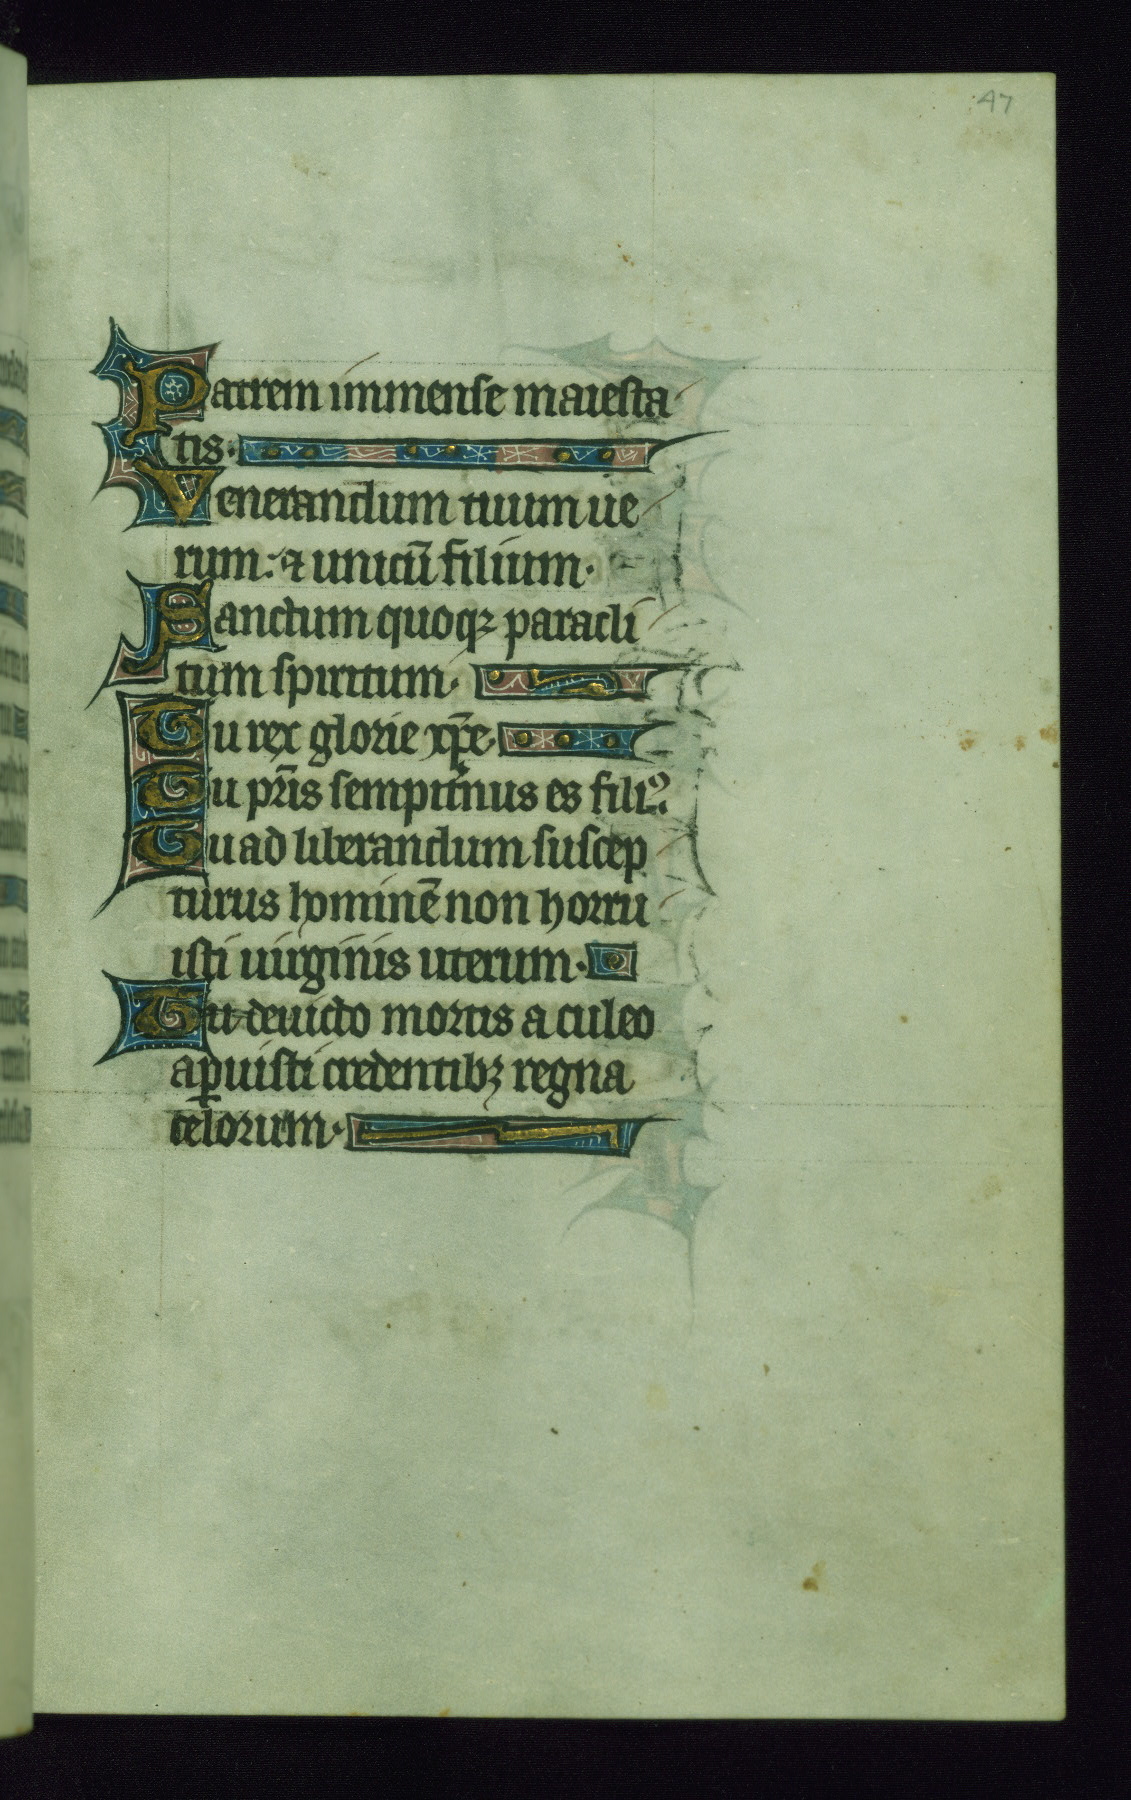 47
Patrem immense maiesta
tis.
Venerandum tuum ue
rum: ⁊ unicū filium.
Sanctum quoqꝫ paracli
tum spiritum.
Tu rex glorie xp̄e.
Tu pr̄is sempit̄nus es filiꝰ.
Tu ad liberandum suscep
turus hominē non horru
isti uirginis uterum.
Tu deuicto mortis aculeo
aꝑuisti credentibꝫ regna
celorum.